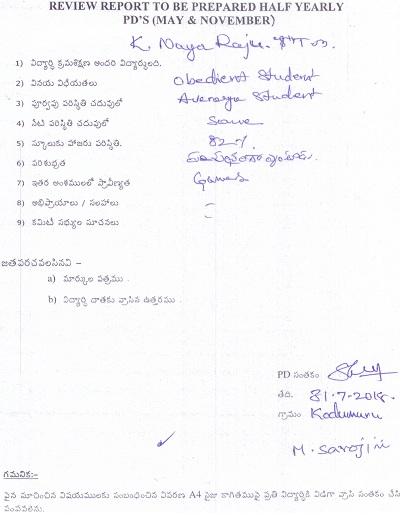 REVIEW REPORT TO BE PREPARED HALF YEARLY
PD'S (MAY & NOVEMBER)
K. Naga Raju.
1) విద్యార్థి క్రమశిక్షణ అందరి విద్యార్థులది.
2) వినయ విధేయతలు Obedient Student
3) పూర్వపు పరిస్థితి చదువులో Average Student
4) నేటి పరిస్థితి చదువులో Same
5) స్కూలుకు హాజరు పరిస్థితి. 82%
6) పరిశుభ్రత
7) ఇతర అంశములలో ప్రావీణ్యత Games
8) అభిప్రాయాలు / సలహాలు –
9) కమిటీ సభ్యుల సూచనలు –
జతపరచవలసినవి –
a) మార్కుల పత్రము .
b) విద్యార్థి దాతకు వ్రాసిన ఉత్తరము .
PD సంతకం
తేది. 31.7-2018.
గ్రామం Kodumuru
M. Sarojini
గమనిక:-
పైన సూచించిన విషయములకు సంబంధించిన వివరణ A4 సైజు కాగితముపై ప్రతి విద్యార్థికి విడిగా వ్రాసి సంతకం చేసి
పంపవలెను.